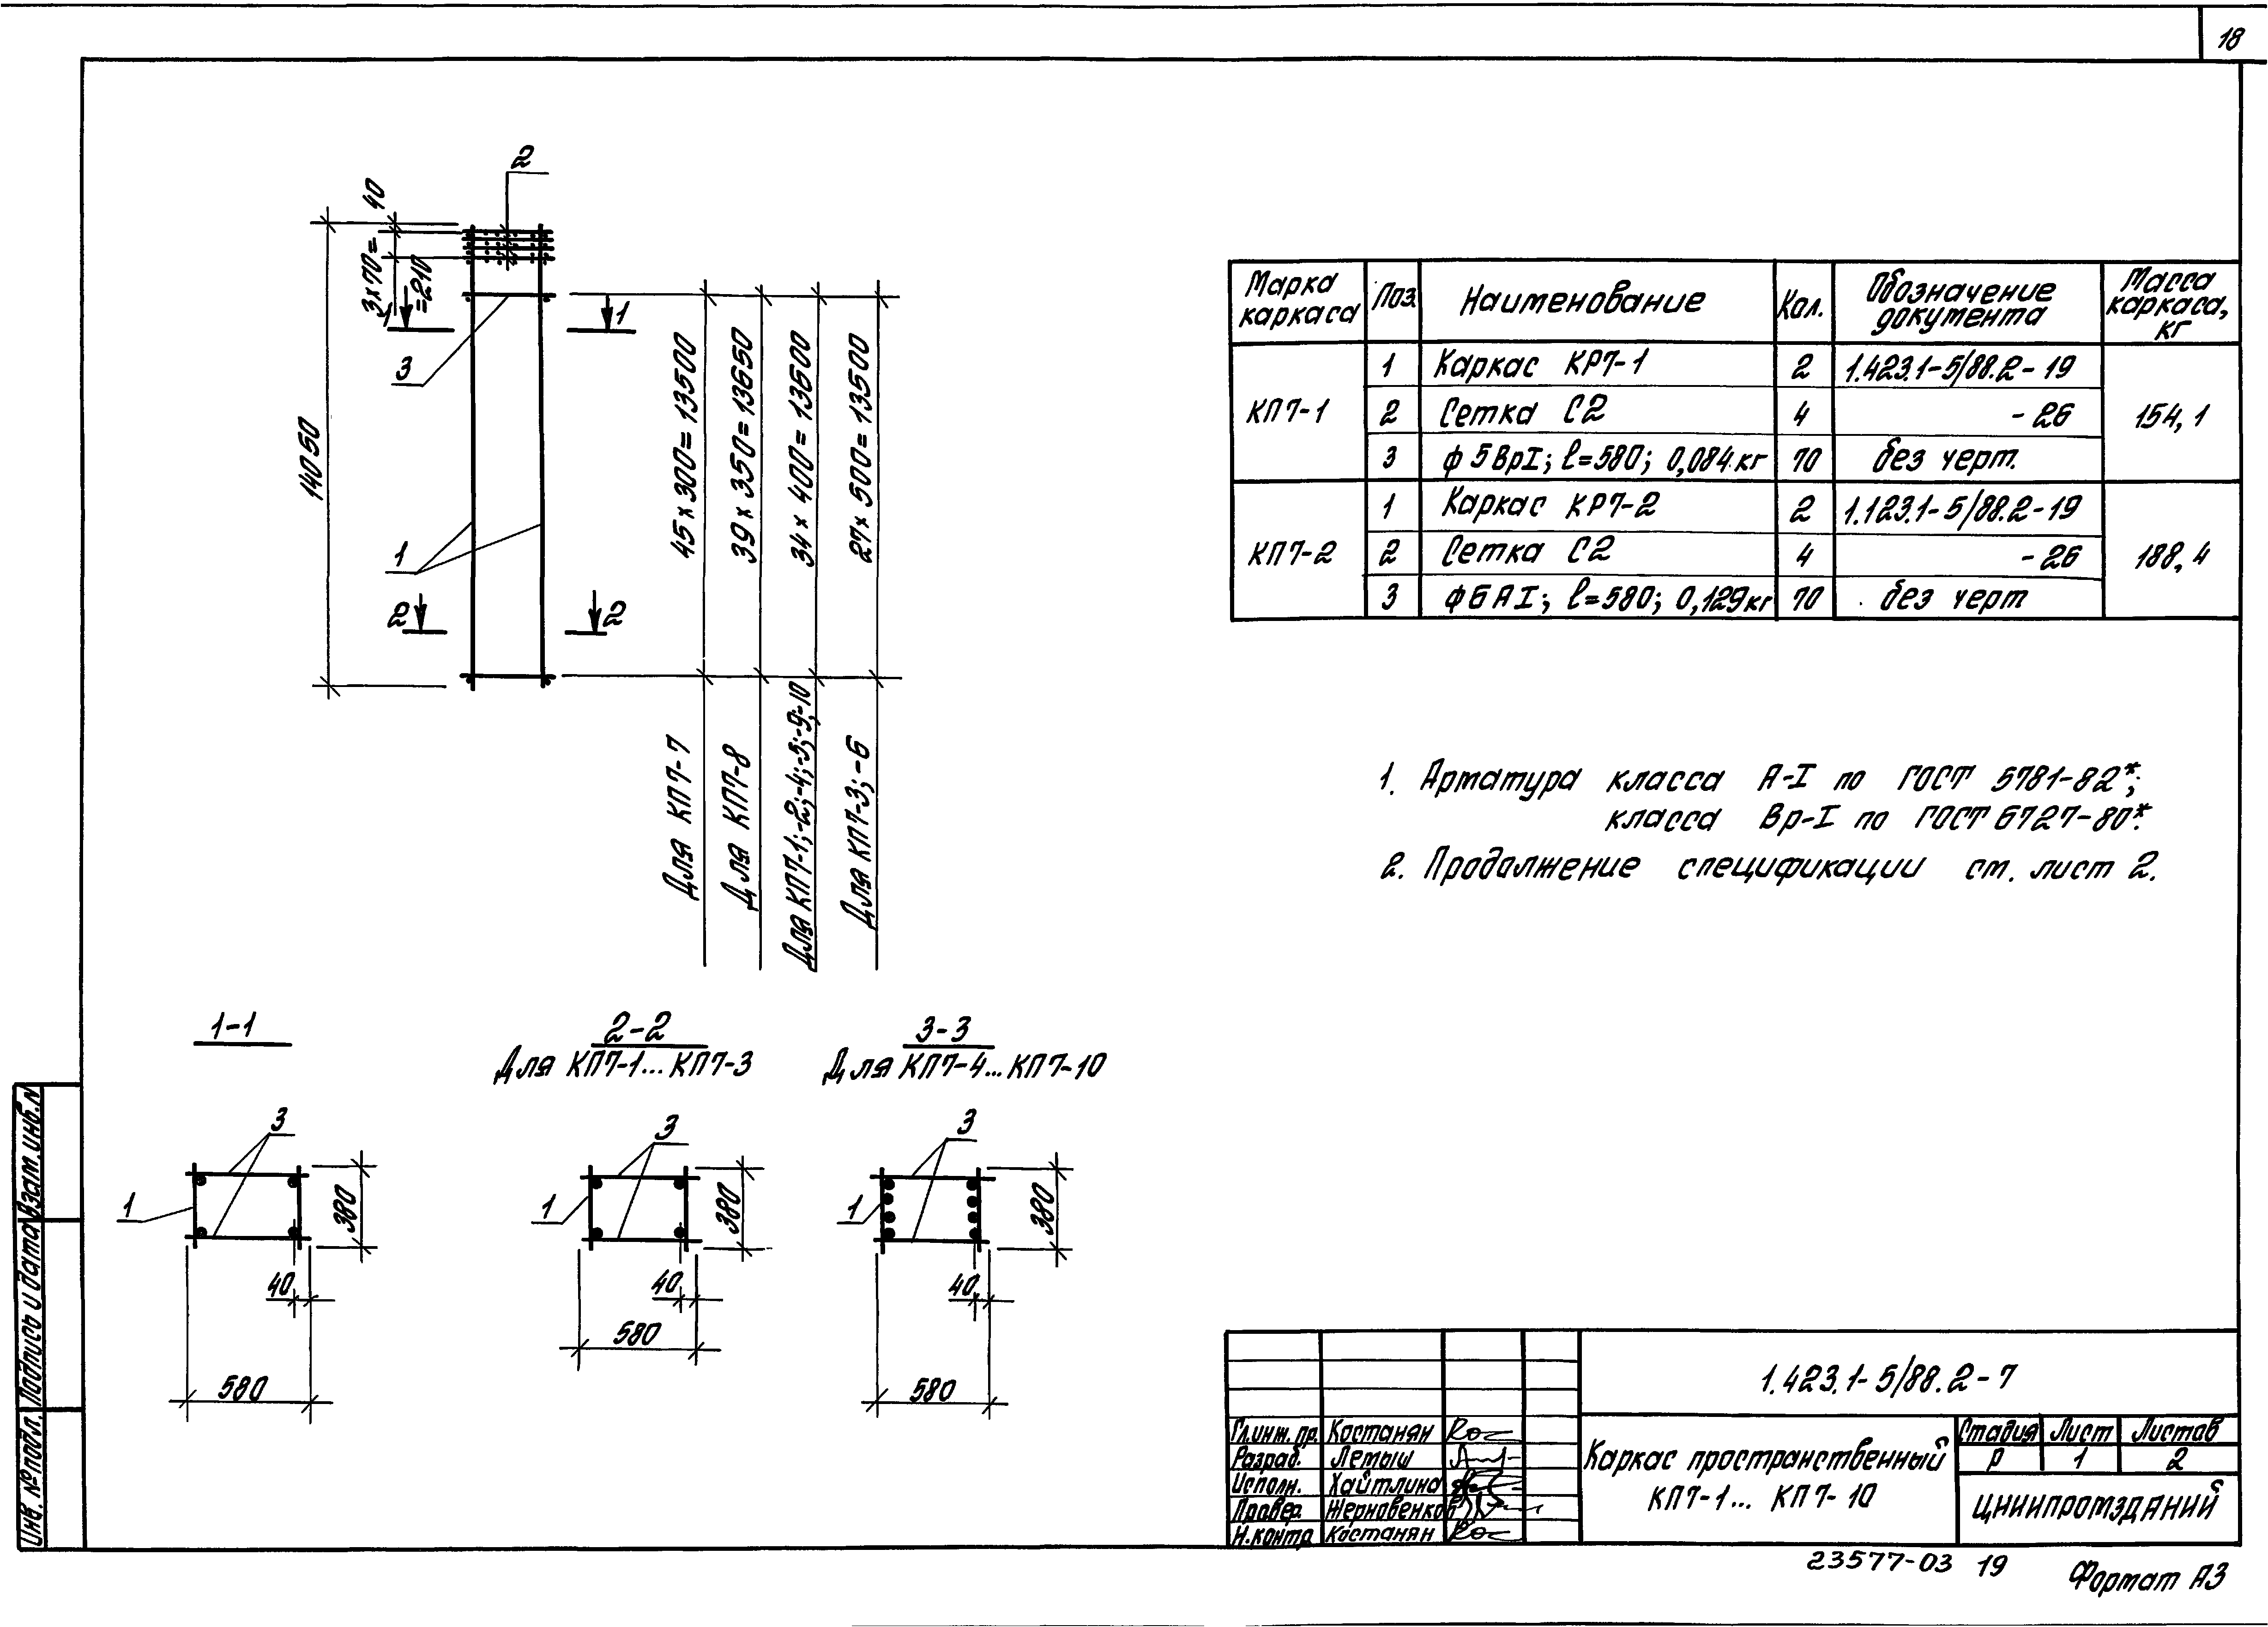 18
2
40
3×70=
=210
1
1
3
14050
1
2
2
45×300=13500
39×350=13650
34×400=13600
27×500=13500
Для КП7-7
Для КП7-8
Для КП7-1;-2;-4;-5;-9;-10
Для КП7-3;-6
Марка каркаса | Поз. | Наименование | Кол. | Обозначение документа | Масса каркаса, кг
КП7-1 | 1 | Каркас КР7-1 | 2 | 1.423.1-5/88.2-19 | 154,1
2 | Сетка С2 | 4 | -26
3 | ф5ВрI; l=580; 0,084 кг | 70 | без черт.
КП7-2 | 1 | Каркас КР7-2 | 2 | 1.123.1-5/88.2-19 | 188,4
2 | Сетка С2 | 4 | -26
3 | ф6АI; l=580; 0,129 кг | 70 | без черт
1. Арматура класса А-I по ГОСТ 5781-82*;
класса Вр-I по ГОСТ 6727-80*.
2. Продолжение спецификации см. лист 2.
1-1
3
1
380
40
580
2-2
Для КП7-1...КП7-3
3
1
380
40
580
3-3
Для КП7-4...КП7-10
3
1
380
40
580
Инв. № подл. Подпись и дата Взам. инв. N
1.423.1-5/88.2-7
Гл.инж.пр. Костанян
Разраб. Летыш
Исполн. Хайтлина
Провер. Жерновенков
Н.контр Костанян
Каркас пространственный
КП7-1... КП7-10
Стадия Лист Листов
Р 1 2
ЦНИИПРОМЗДАНИЙ
23577-03 19
Формат А3